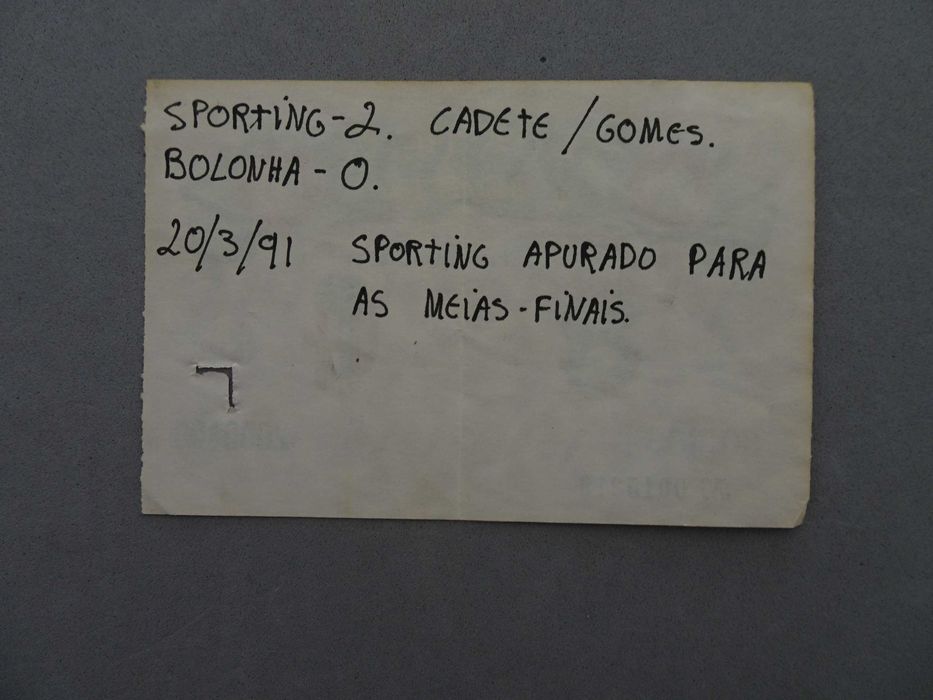 SPORTING-2. CADETE / GOMES.
BOLONHA - 0.
20/3/91 SPORTING APURADO PARA
AS MEIAS-FINAIS.